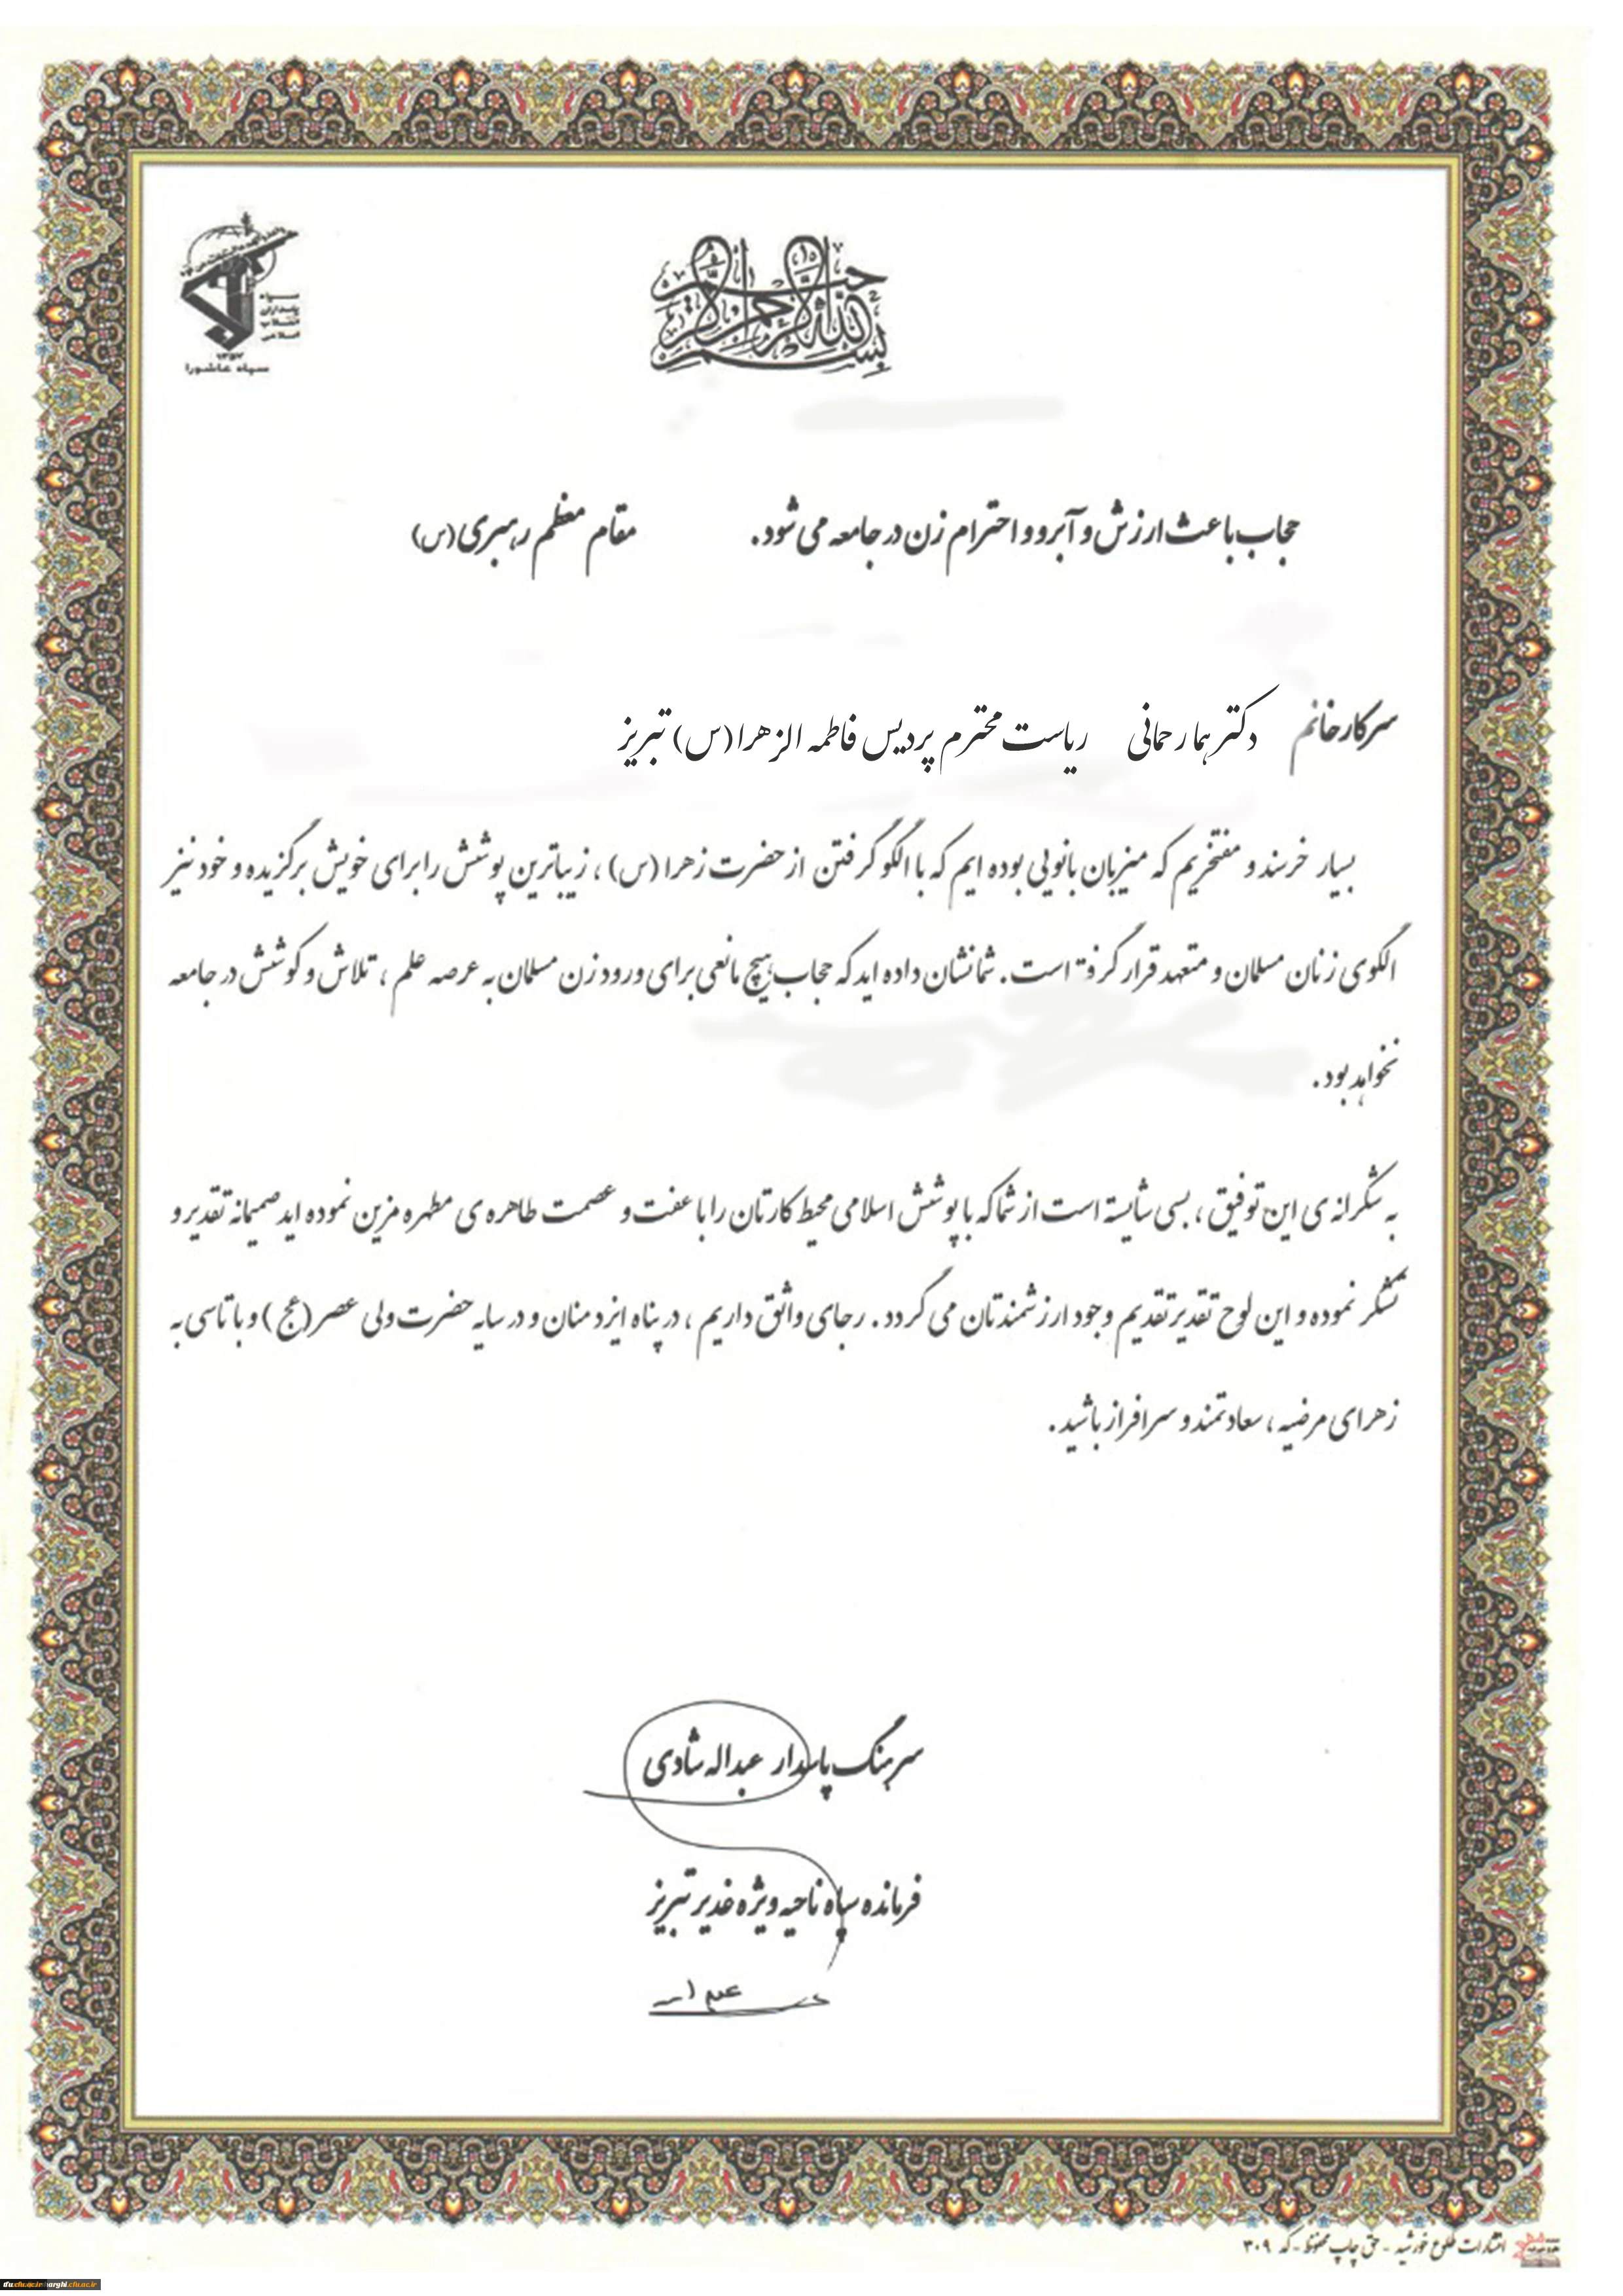 بسم الله الرحمن الرحیم
سپاه
پاسداران
انقلاب
اسلامی
۱۳۵۷
سپاه عاشورا
حجاب باعث ارزش و آبرو و احترام زن در جامعه می شود. مقام معظم رهبری (س)
سرکار خانم دکتر هما رحمانی ریاست محترم پردیس فاطمه الزهرا (س) تبریز
بسیار خرسند و مفتخریم که میزبان بانویی بوده ایم که با الگو گرفتن از حضرت زهرا (س) ، زیباترین پوشش را برای خویش برگزیده و خود نیز
الگوی زنان مسلمان و متعهد قرار گرفته است. شما نشان داده اید که حجاب هیچ مانعی برای ورود زن مسلمان به عرصه علم ، تلاش و کوشش در جامعه
نخواهد بود.
به شکرانه ی این توفیق ، بسی شایسته است از شما که با پوشش اسلامی محیط کارتان را با عفت و عصمت طاهره ی مطهره مزین نموده اید صمیمانه تقدیر و
تشکر نموده و این لوح تقدیر تقدیم وجود ارزشمندتان می گردد. رجای واثق داریم ، در پناه ایزد منان و در سایه حضرت ولی عصر (عج) و با تاسی به
زهرای مرضیه ، سعادتمند و سرافراز باشید.
سرهنگ پاسدار عبداله شادی
فرمانده سپاه ناحیه ویژه غدیر تبریز
انتشارات طلوع خورشید - حق چاپ محفوظ - کد ۳۰۹